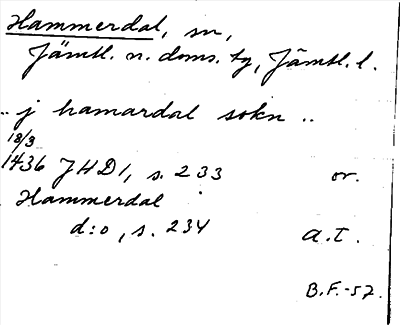 Hammerdal, sn,
Jämtl. n. doms. tg, Jämtl. l.
.. j hamardal sokn ..
18/3
1436 JHD1, s. 233 or.
Hammerdal
d:o, s. 234 a.t.
B.F.-57.